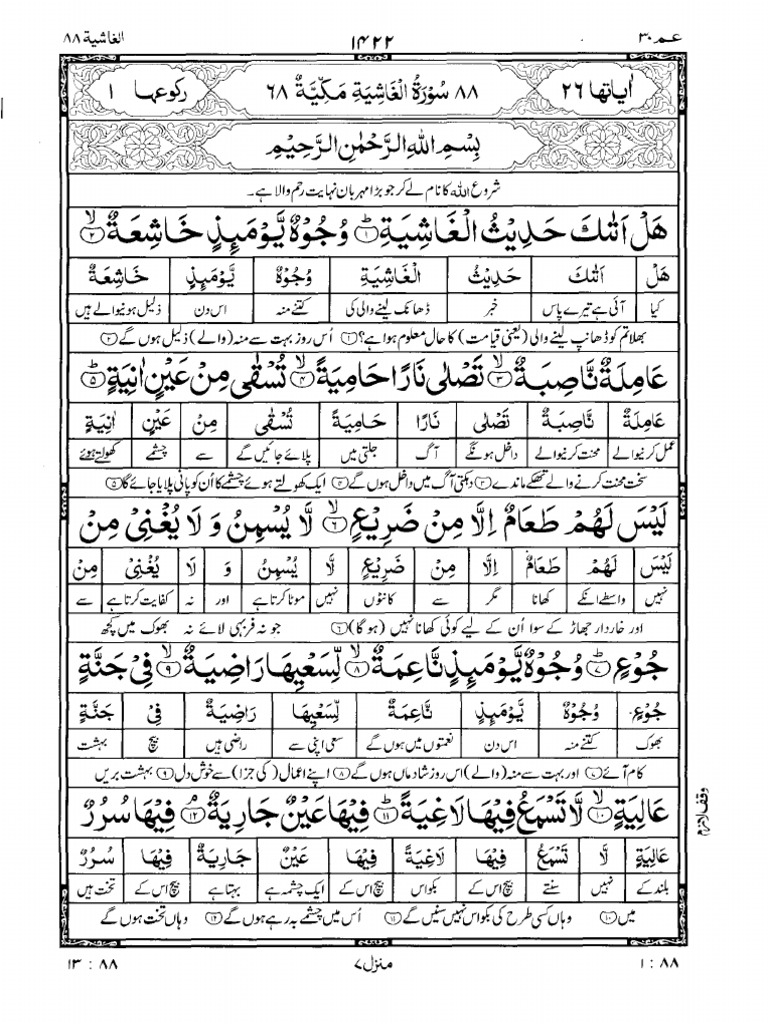 عـم ۳۰ ۱۴۲۲ الغاشیة ۸۸
اٰیاتها ۲۶ ۸۸ سُوْرَةُ الْغَاشِيَةِ مَكِّيَّةٌ ۶۸ رکوعها ۱
بِسْمِ اللهِ الرَّحْمٰنِ الرَّحِيْمِ
شروع اللہ کا نام لے کر جو بڑا مہربان نہایت رحم والا ہے۔
هَلْ اَتٰىكَ حَدِيْثُ الْغَاشِيَةِ ۱ؕ وُجُوْهٌ يَّوْمَئِذٍ خَاشِعَةٌ ۲ۙ
هَلْ اَتٰىكَ حَدِيْثُ الْغَاشِيَةِ وُجُوْهٌ يَّوْمَئِذٍ خَاشِعَةٌ
کیا آئی ہے تیرے پاس خبر ڈھانک لینے والی کی کتنے منہ اس دن ذلیل ہونیوالے ہیں
بھلا تم کو ڈھانپ لینے والی (یعنی قیامت) کا حال معلوم ہوا ہے؟ ۱ اُس روز بہت سے منہ (والے) ذلیل ہوں گے ۲
عَامِلَةٌ نَّاصِبَةٌ ۳ۙ تَصْلٰى نَارًا حَامِيَةً ۴ۙ تُسْقٰى مِنْ عَيْنٍ اٰنِيَةٍ ۵ؕ
عَامِلَةٌ نَّاصِبَةٌ تَصْلٰى نَارًا حَامِيَةً تُسْقٰى مِنْ عَيْنٍ اٰنِيَةٍ
عمل کرنیوالے محنت کرنیوالے داخل ہونگے آگ جلتی میں پلائے جائیں گے سے چشمے کھولتے ہوئے
سخت محنت کرنے والے تھکے ماندے ۳ دہکتی آگ میں داخل ہوں گے ۴ ایک کھولتے ہوئے چشمے کا اُن کو پانی پلایا جائے گا ۵
لَيْسَ لَهُمْ طَعَامٌ اِلَّا مِنْ ضَرِيْعٍ ۶ۙ لَّا يُسْمِنُ وَ لَا يُغْنِىْ مِنْ
لَيْسَ لَهُمْ طَعَامٌ اِلَّا مِنْ ضَرِيْعٍ لَّا يُسْمِنُ وَ لَا يُغْنِىْ مِنْ
نہیں واسطے انکے کھانا مگر سے کانٹوں نہیں موٹا کرتا ہے اور نہ کفایت کرتا ہے سے
اور خاردار جھاڑ کے سوا اُن کے لیے کوئی کھانا نہیں (ہو گا) ۶ جو نہ فربہی لائے نہ بھوک میں کچھ
جُوْعٍ ۷ؕ وُجُوْهٌ يَّوْمَئِذٍ نَّاعِمَةٌ ۸ۙ لِّسَعْيِهَا رَاضِيَةٌ ۹ۙ فِىْ جَنَّةٍ
جُوْعٍ وُجُوْهٌ يَّوْمَئِذٍ نَّاعِمَةٌ لِّسَعْيِهَا رَاضِيَةٌ فِىْ جَنَّةٍ
بھوک کتنے منہ اس دن نعمتوں میں ہوں گے سعی اپنی سے راضی ہیں بیچ بہشت
کام آئے ۷ اور بہت سے منہ (والے) اس روز شادماں ہوں گے ۸ اپنے اعمال (کی جزا) سے خوش دل ۹ بہشت بریں
عَالِيَةٍ ۱۰ۙ لَّا تَسْمَعُ فِيْهَا لَاغِيَةً ۱۱ؕ فِيْهَا عَيْنٌ جَارِيَةٌ ۱۲ۘ فِيْهَا سُرُرٌ
وقف لازم
عَالِيَةٍ لَّا تَسْمَعُ فِيْهَا لَاغِيَةً فِيْهَا عَيْنٌ جَارِيَةٌ فِيْهَا سُرُرٌ
بلند کے نہیں سنتے بیچ اس کے بکواس بیچ اس کے ایک چشمہ ہے بہتا ہے بیچ اس کے تخت ہیں
میں ۱۰ وہاں کسی طرح کی بکواس نہیں سنیں گے ۱۱ اُس میں چشمے بہ رہے ہوں گے ۱۲ وہاں تخت ہوں گے
۸۸ : ۱ منزل ۷ ۸۸ : ۱۳